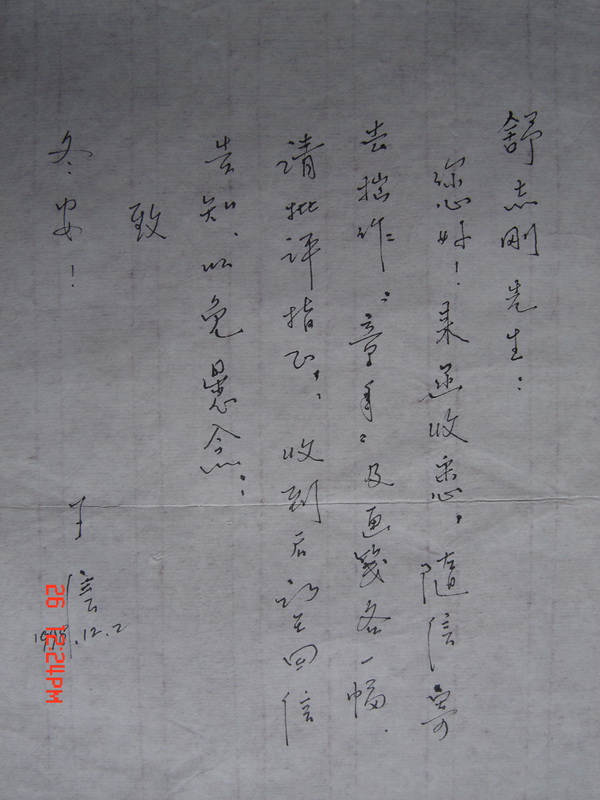 舒志刚先生：
您好！来函收悉。随信寄
去拙作：章草：及画笺各一幅．
请批评指正．收到后望回信
告知．以免悬念：
致
冬安！
于信
1998.12.2
26 12:24PM